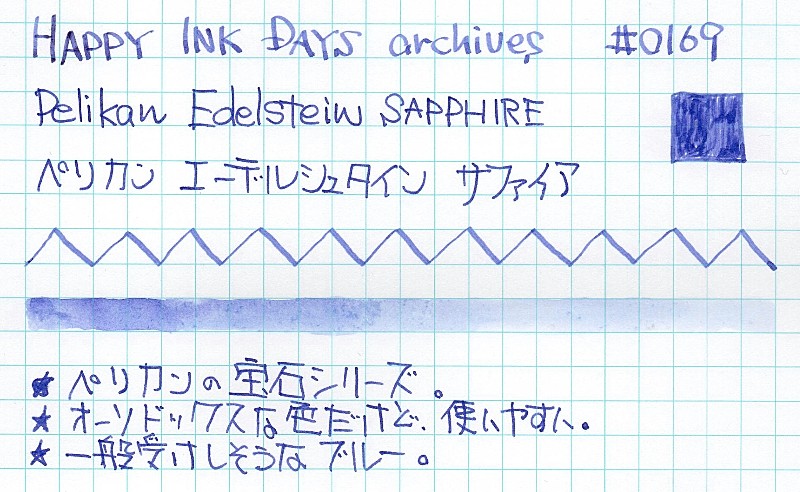 HAPPY INK DAYS archives #0169
Pelikan Edelstein SAPPHIRE
ペリカン エーデルシュタイン サファイア
★ ペリカンの宝石シリーズ。
★ オーソドックスな色だけど、使いやすい。
★ 一般受けしそうなブルー。